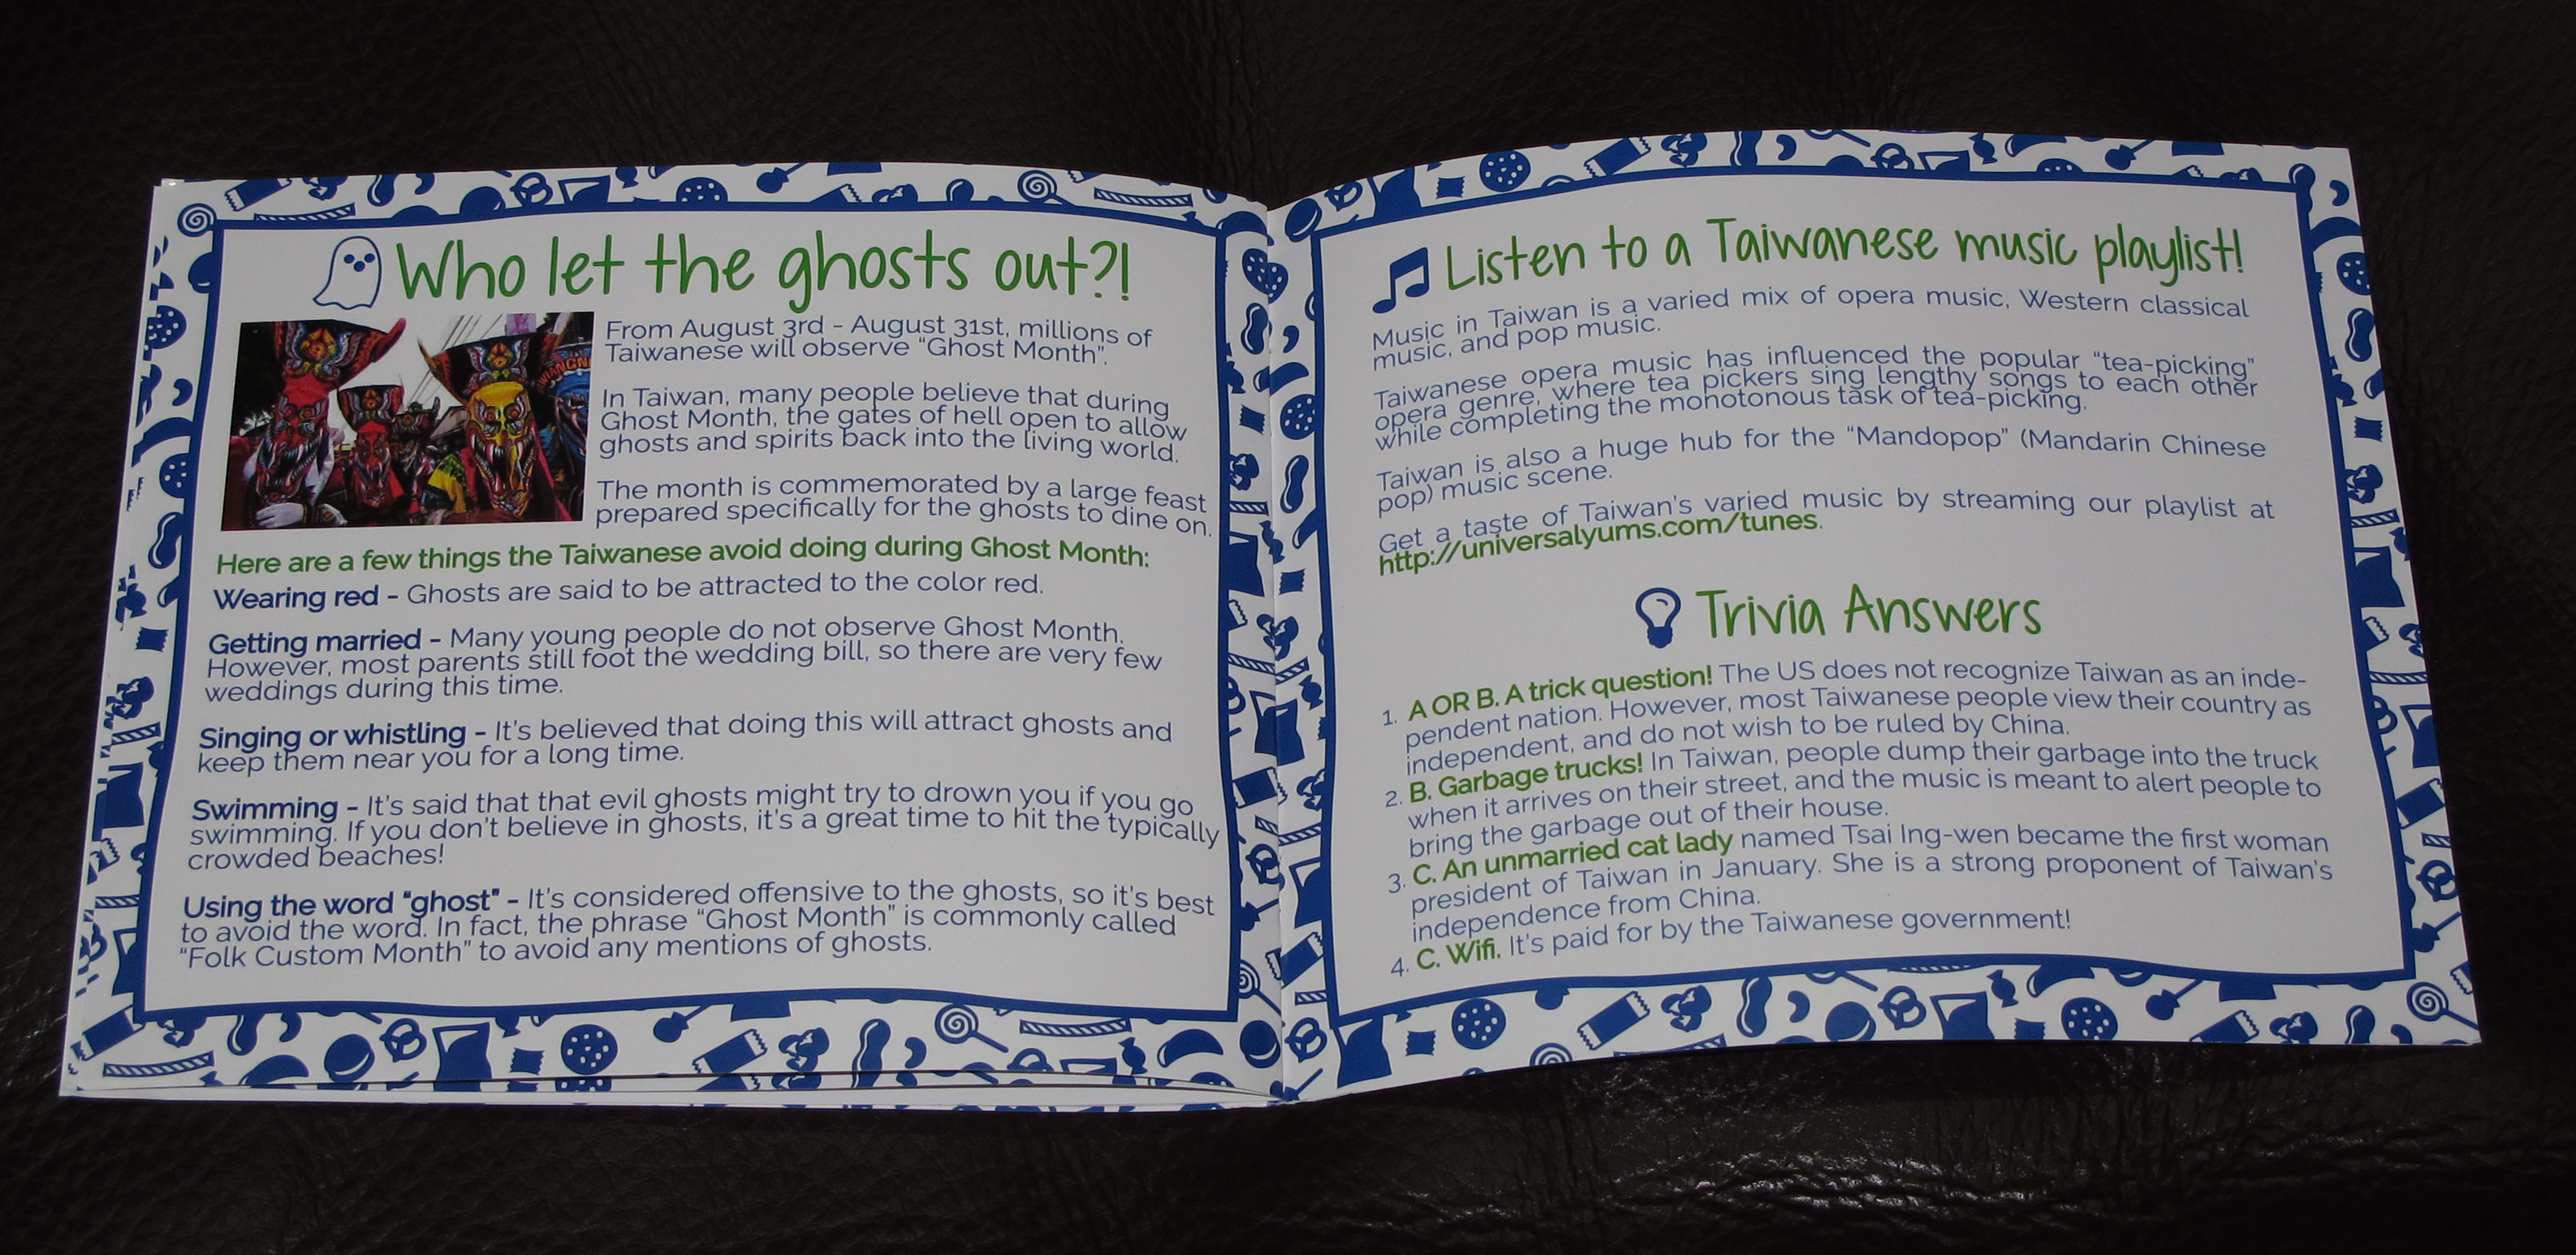 Who let the ghosts out?!
From August 3rd - August 31st, millions of
Taiwanese will observe "Ghost Month".
In Taiwan, many people believe that during
Ghost Month, the gates of hell open to allow
ghosts and spirits back into the living world.
The month is commemorated by a large feast
prepared specifically for the ghosts to dine on.
Here are a few things the Taiwanese avoid doing during Ghost Month:
Wearing red - Ghosts are said to be attracted to the color red.
Getting married - Many young people do not observe Ghost Month.
However, most parents still foot the wedding bill, so there are very few
weddings during this time.
Singing or whistling - It's believed that doing this will attract ghosts and
keep them near you for a long time.
Swimming - It's said that that evil ghosts might try to drown you if you go
swimming. If you don't believe in ghosts, it's a great time to hit the typically
crowded beaches!
Using the word "ghost" - It's considered offensive to the ghosts, so it's best
to avoid the word. In fact, the phrase "Ghost Month" is commonly called
"Folk Custom Month" to avoid any mentions of ghosts.
Listen to a Taiwanese music playlist!
Music in Taiwan is a varied mix of opera music, Western classical
music, and pop music.
Taiwanese opera music has influenced the popular "tea-picking"
opera genre, where tea pickers sing lengthy songs to each other
while completing the monotonous task of tea-picking.
Taiwan is also a huge hub for the "Mandopop" (Mandarin Chinese
pop) music scene.
Get a taste of Taiwan's varied music by streaming our playlist at
http://universalyums.com/tunes.
Trivia Answers
1. A OR B. A trick question! The US does not recognize Taiwan as an inde-
pendent nation. However, most Taiwanese people view their country as
independent, and do not wish to be ruled by China.
2. B. Garbage trucks! In Taiwan, people dump their garbage into the truck
when it arrives on their street, and the music is meant to alert people to
bring the garbage out of their house.
3. C. An unmarried cat lady named Tsai Ing-wen became the first woman
president of Taiwan in January. She is a strong proponent of Taiwan's
independence from China.
4. C. Wifi. It's paid for by the Taiwanese government!